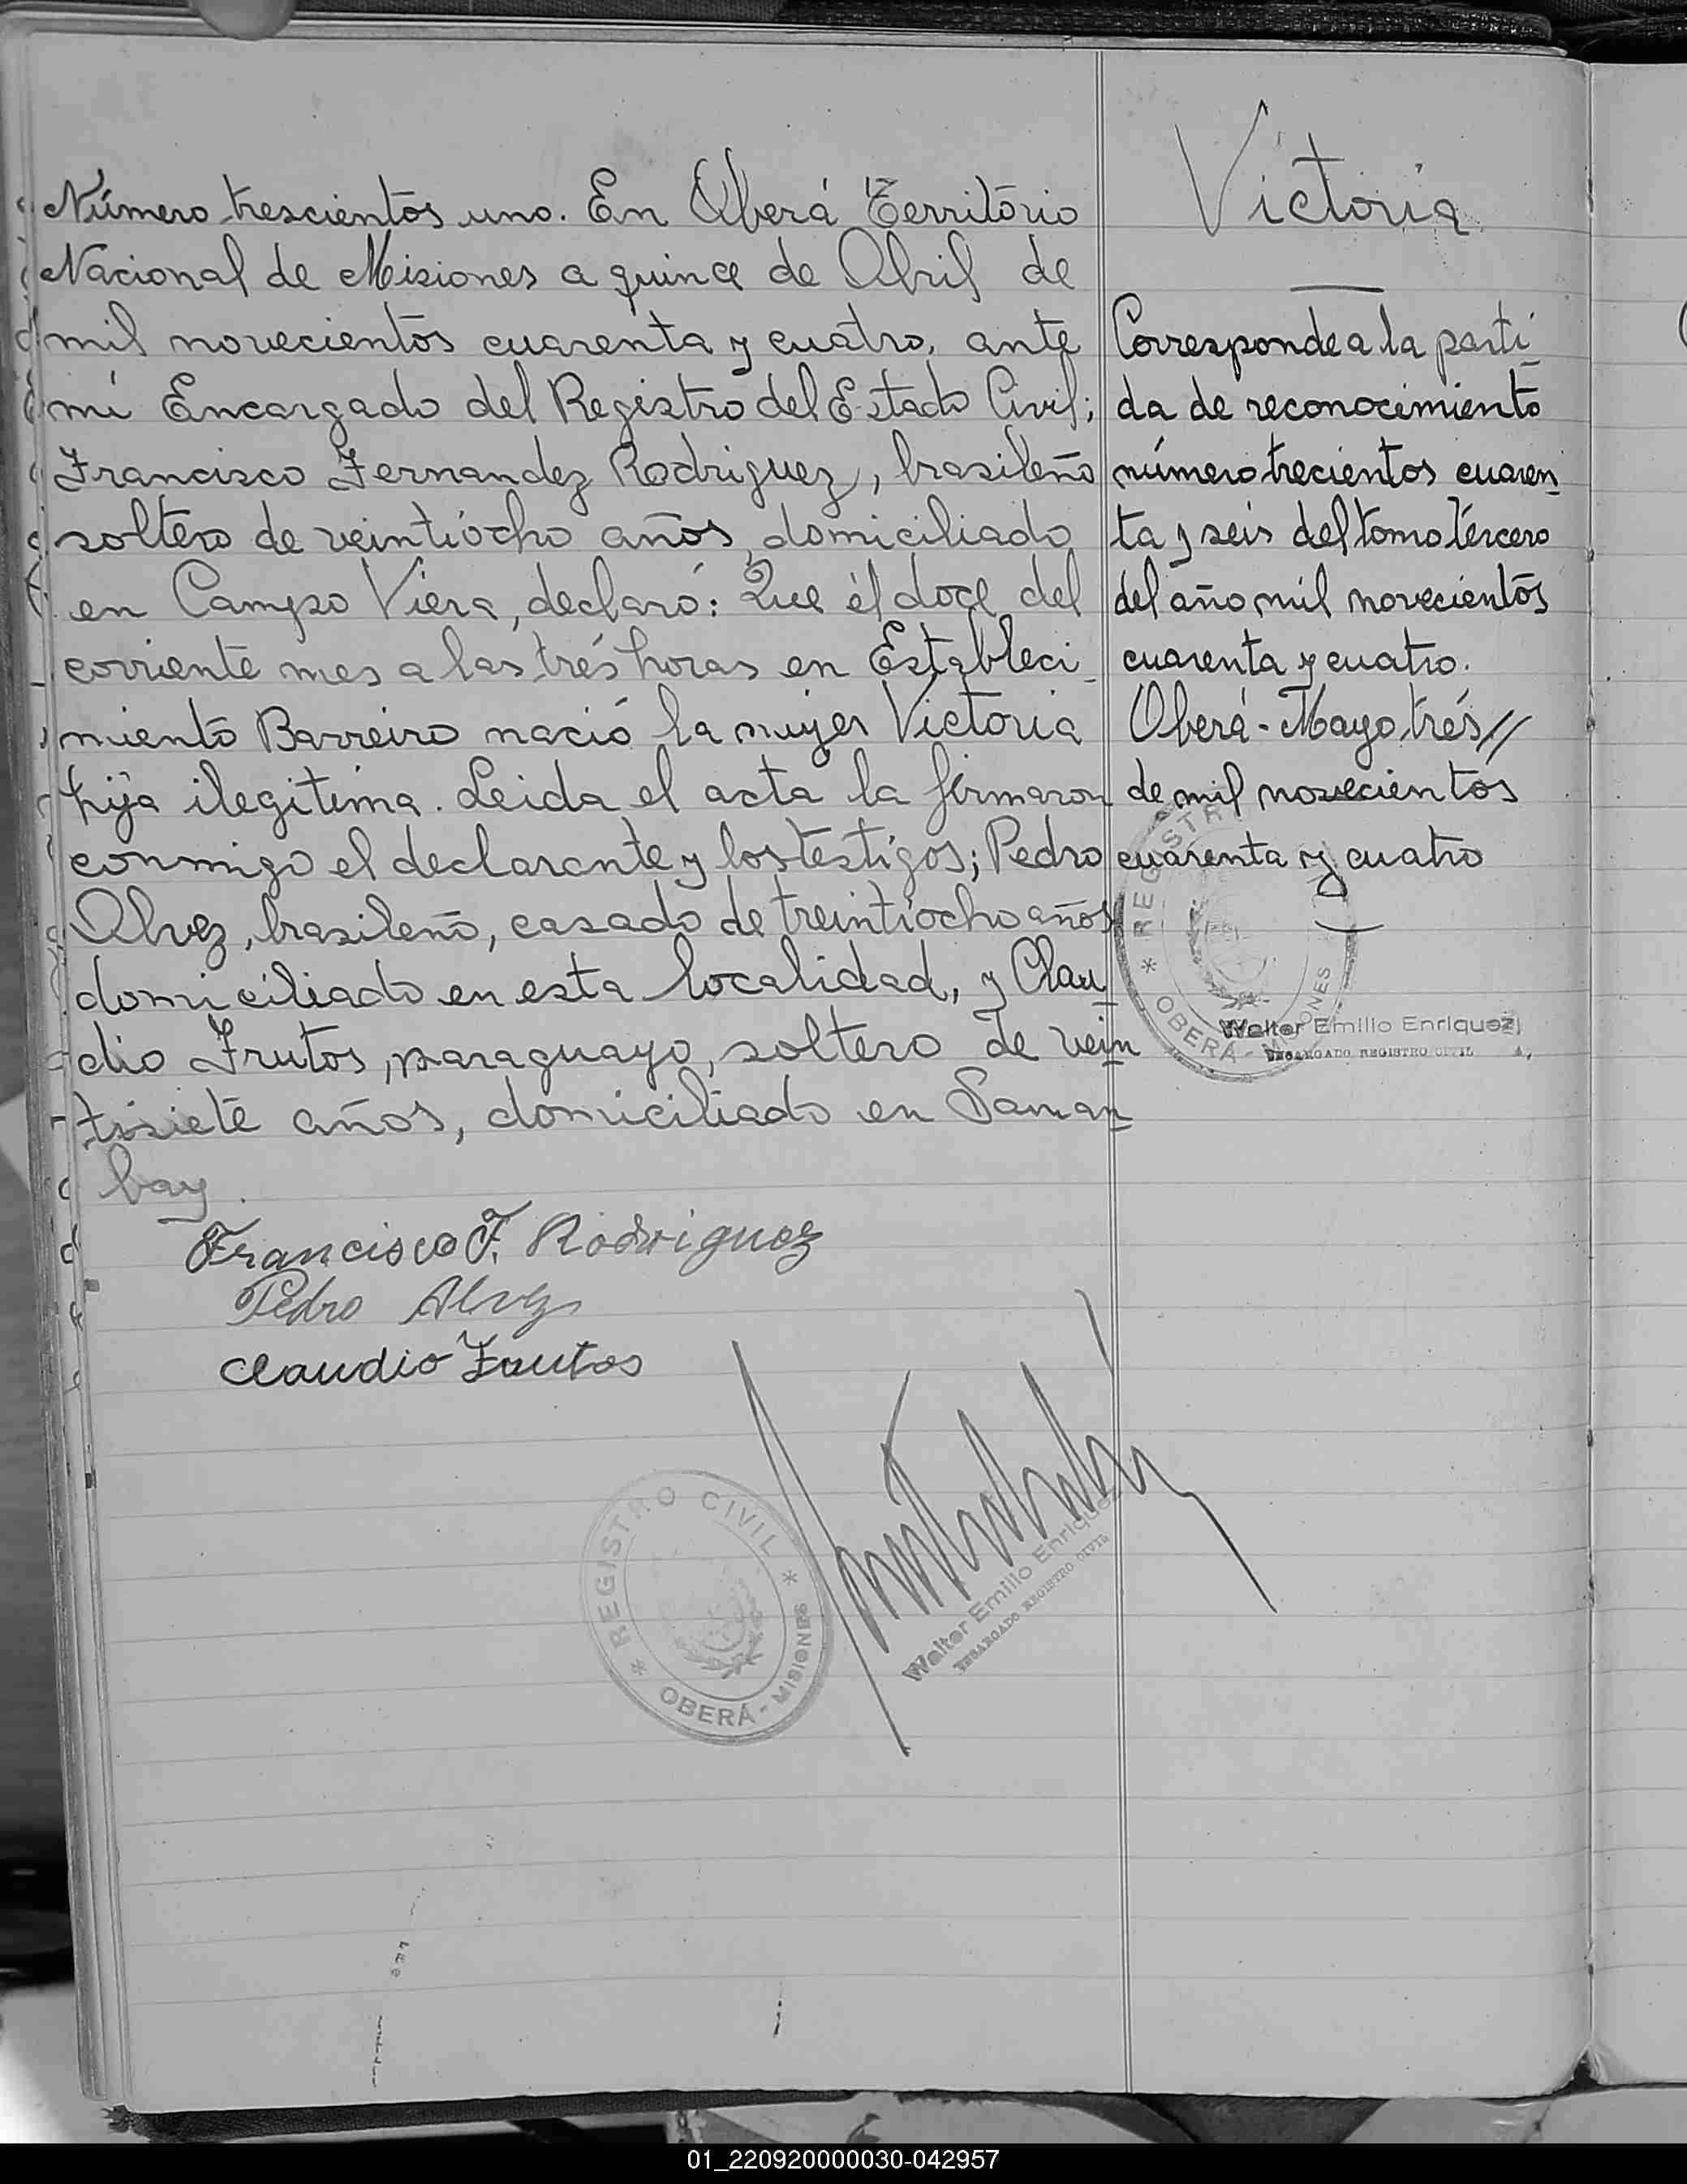 Número trescientos uno. En Oberá Território
Nacional de Misiones a quince de Abril de
mil novecientos cuarenta y cuatro, ante
mi Encargado del Registro del Estado Civil;
Francisco Fernandez Rodriguez, brasileño
soltero de veintiocho años, domiciliado
en Campo Viera, declaró: Que él doce del
corriente mes a las trés horas en Estableci_
miento Barreiro nació la mujer Victoria
hija ilegitima. Leida el acta la firmaron
conmigo el declarante y los testigos; Pedro
Alvez, brasileño, casado de treintiocho años
domiciliado en esta localidad, y Clau
dio Frutos, paraguayo, soltero de vein
tisiete años, domiciliado en Saman
bay.
Francisco F. Rodriguez
Pedro Alvez
Claudio Frutos
REGISTRO CIVIL
OBERÁ - MISIONES
Walter Emilio Enriquez
ENCARGADO REGISTRO CIVIL
Victoria
Corresponde a la parti_
da de reconocimiento
número trecientos cuaren
ta y seis del tomo tércero
del año mil novecientos
cuarenta y cuatro.
Oberá - Mayo, trés //
de mil novecientos
cuarenta y cuatro
REGISTR
OBERÁ - MISIONES
Walter Emilio Enriquez
ENCARGADO REGISTRO CIVIL
01_220920000030-042957